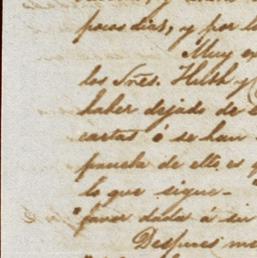 pocos dias, y por l
Muy
los Sres. Heldt y
haber dejado de
cartas ó se han
prueba de ello es q
lo que sigue-
"favor dada á su
Despues me